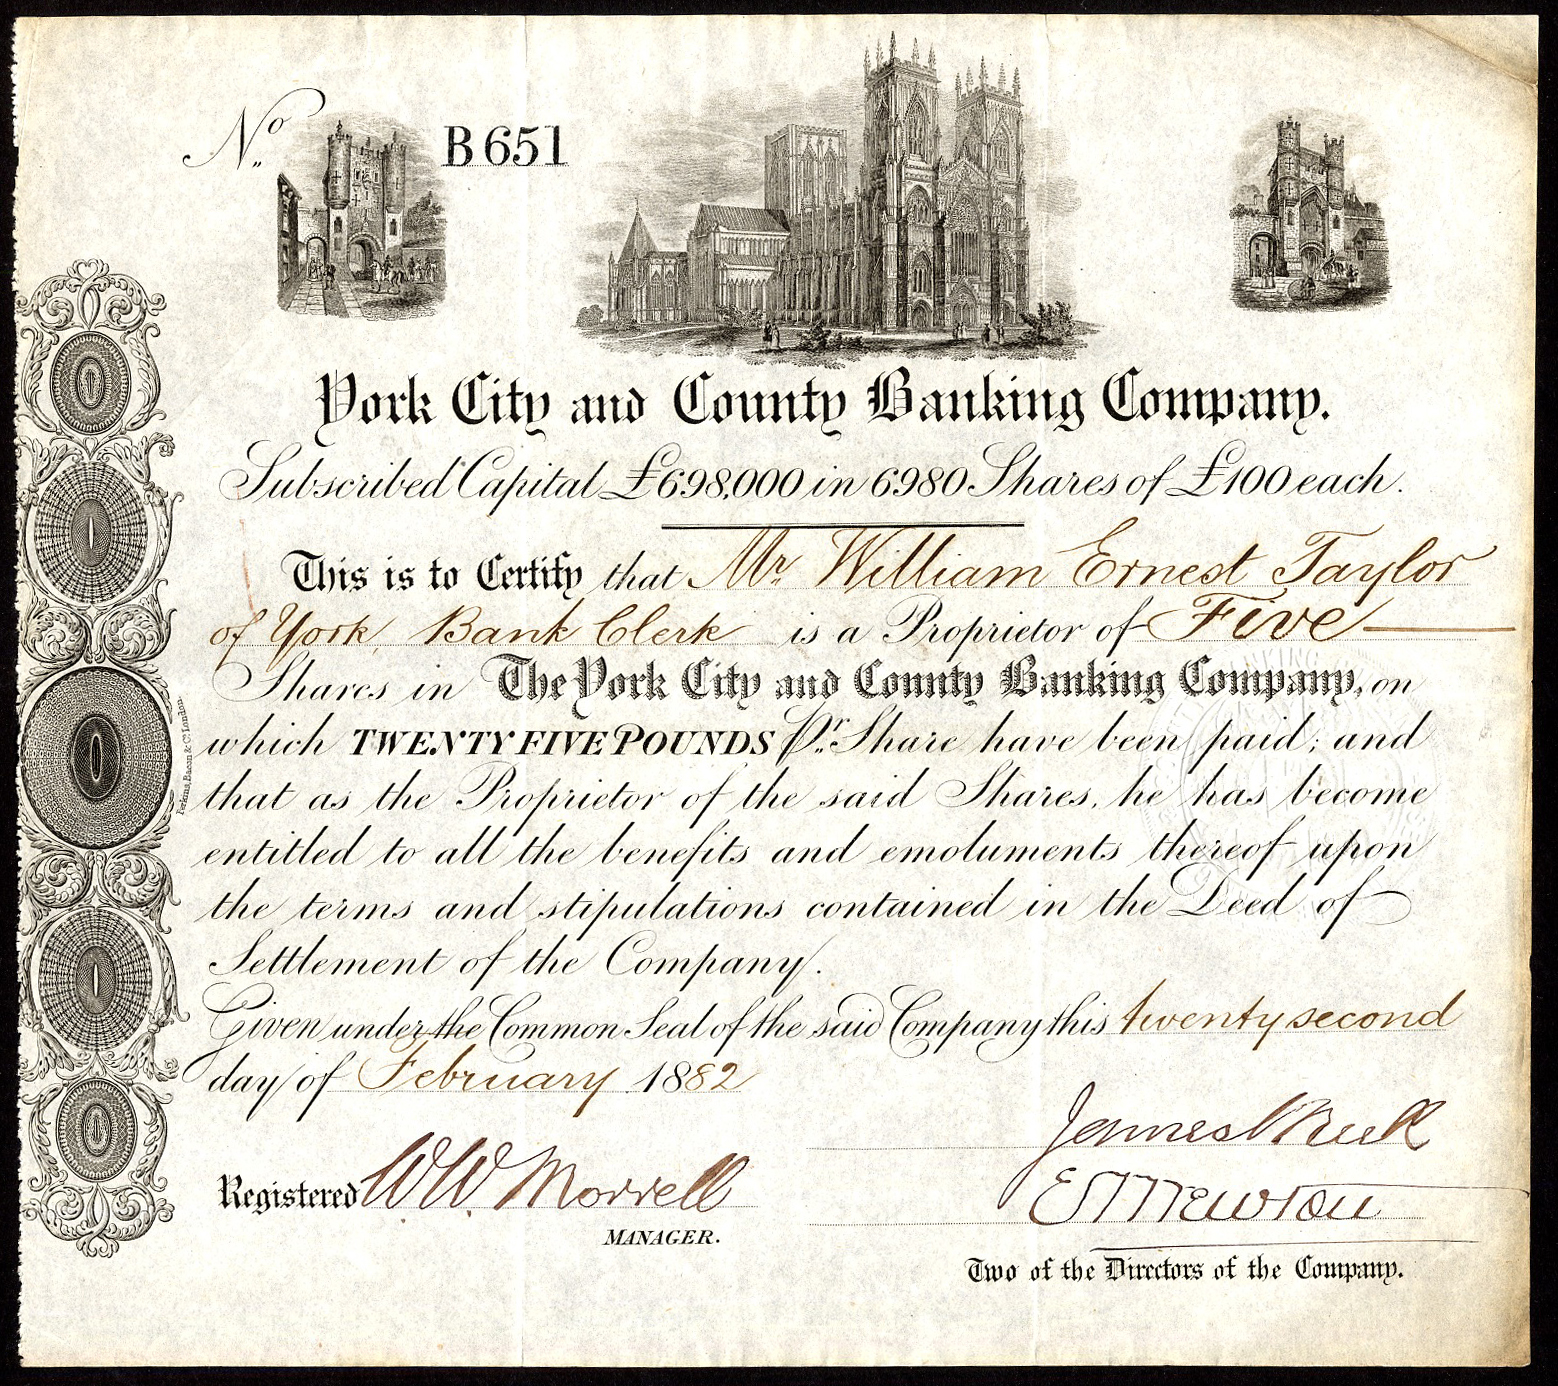 No. B651
York City and County Banking Company.
Subscribed Capital £698,000 in 6980 Shares of £100 each.
This is to Certify that Mr. William Ernest Taylor
of York, Bank Clerk is a Proprietor of Five
Shares in The York City and County Banking Company, on
which TWENTY FIVE POUNDS Pr. Share have been paid; and
that as the Proprietor of the said Shares, he has become
entitled to all the benefits and emoluments thereof upon
the terms and stipulations contained in the Deed of
Settlement of the Company.
Given under the Common Seal of the said Company this twenty second
day of February 1882
James
Registered W.W. Morrell
MANAGER.
Newton
Two of the Directors of the Company.
Perkins, Bacon & Co. London.